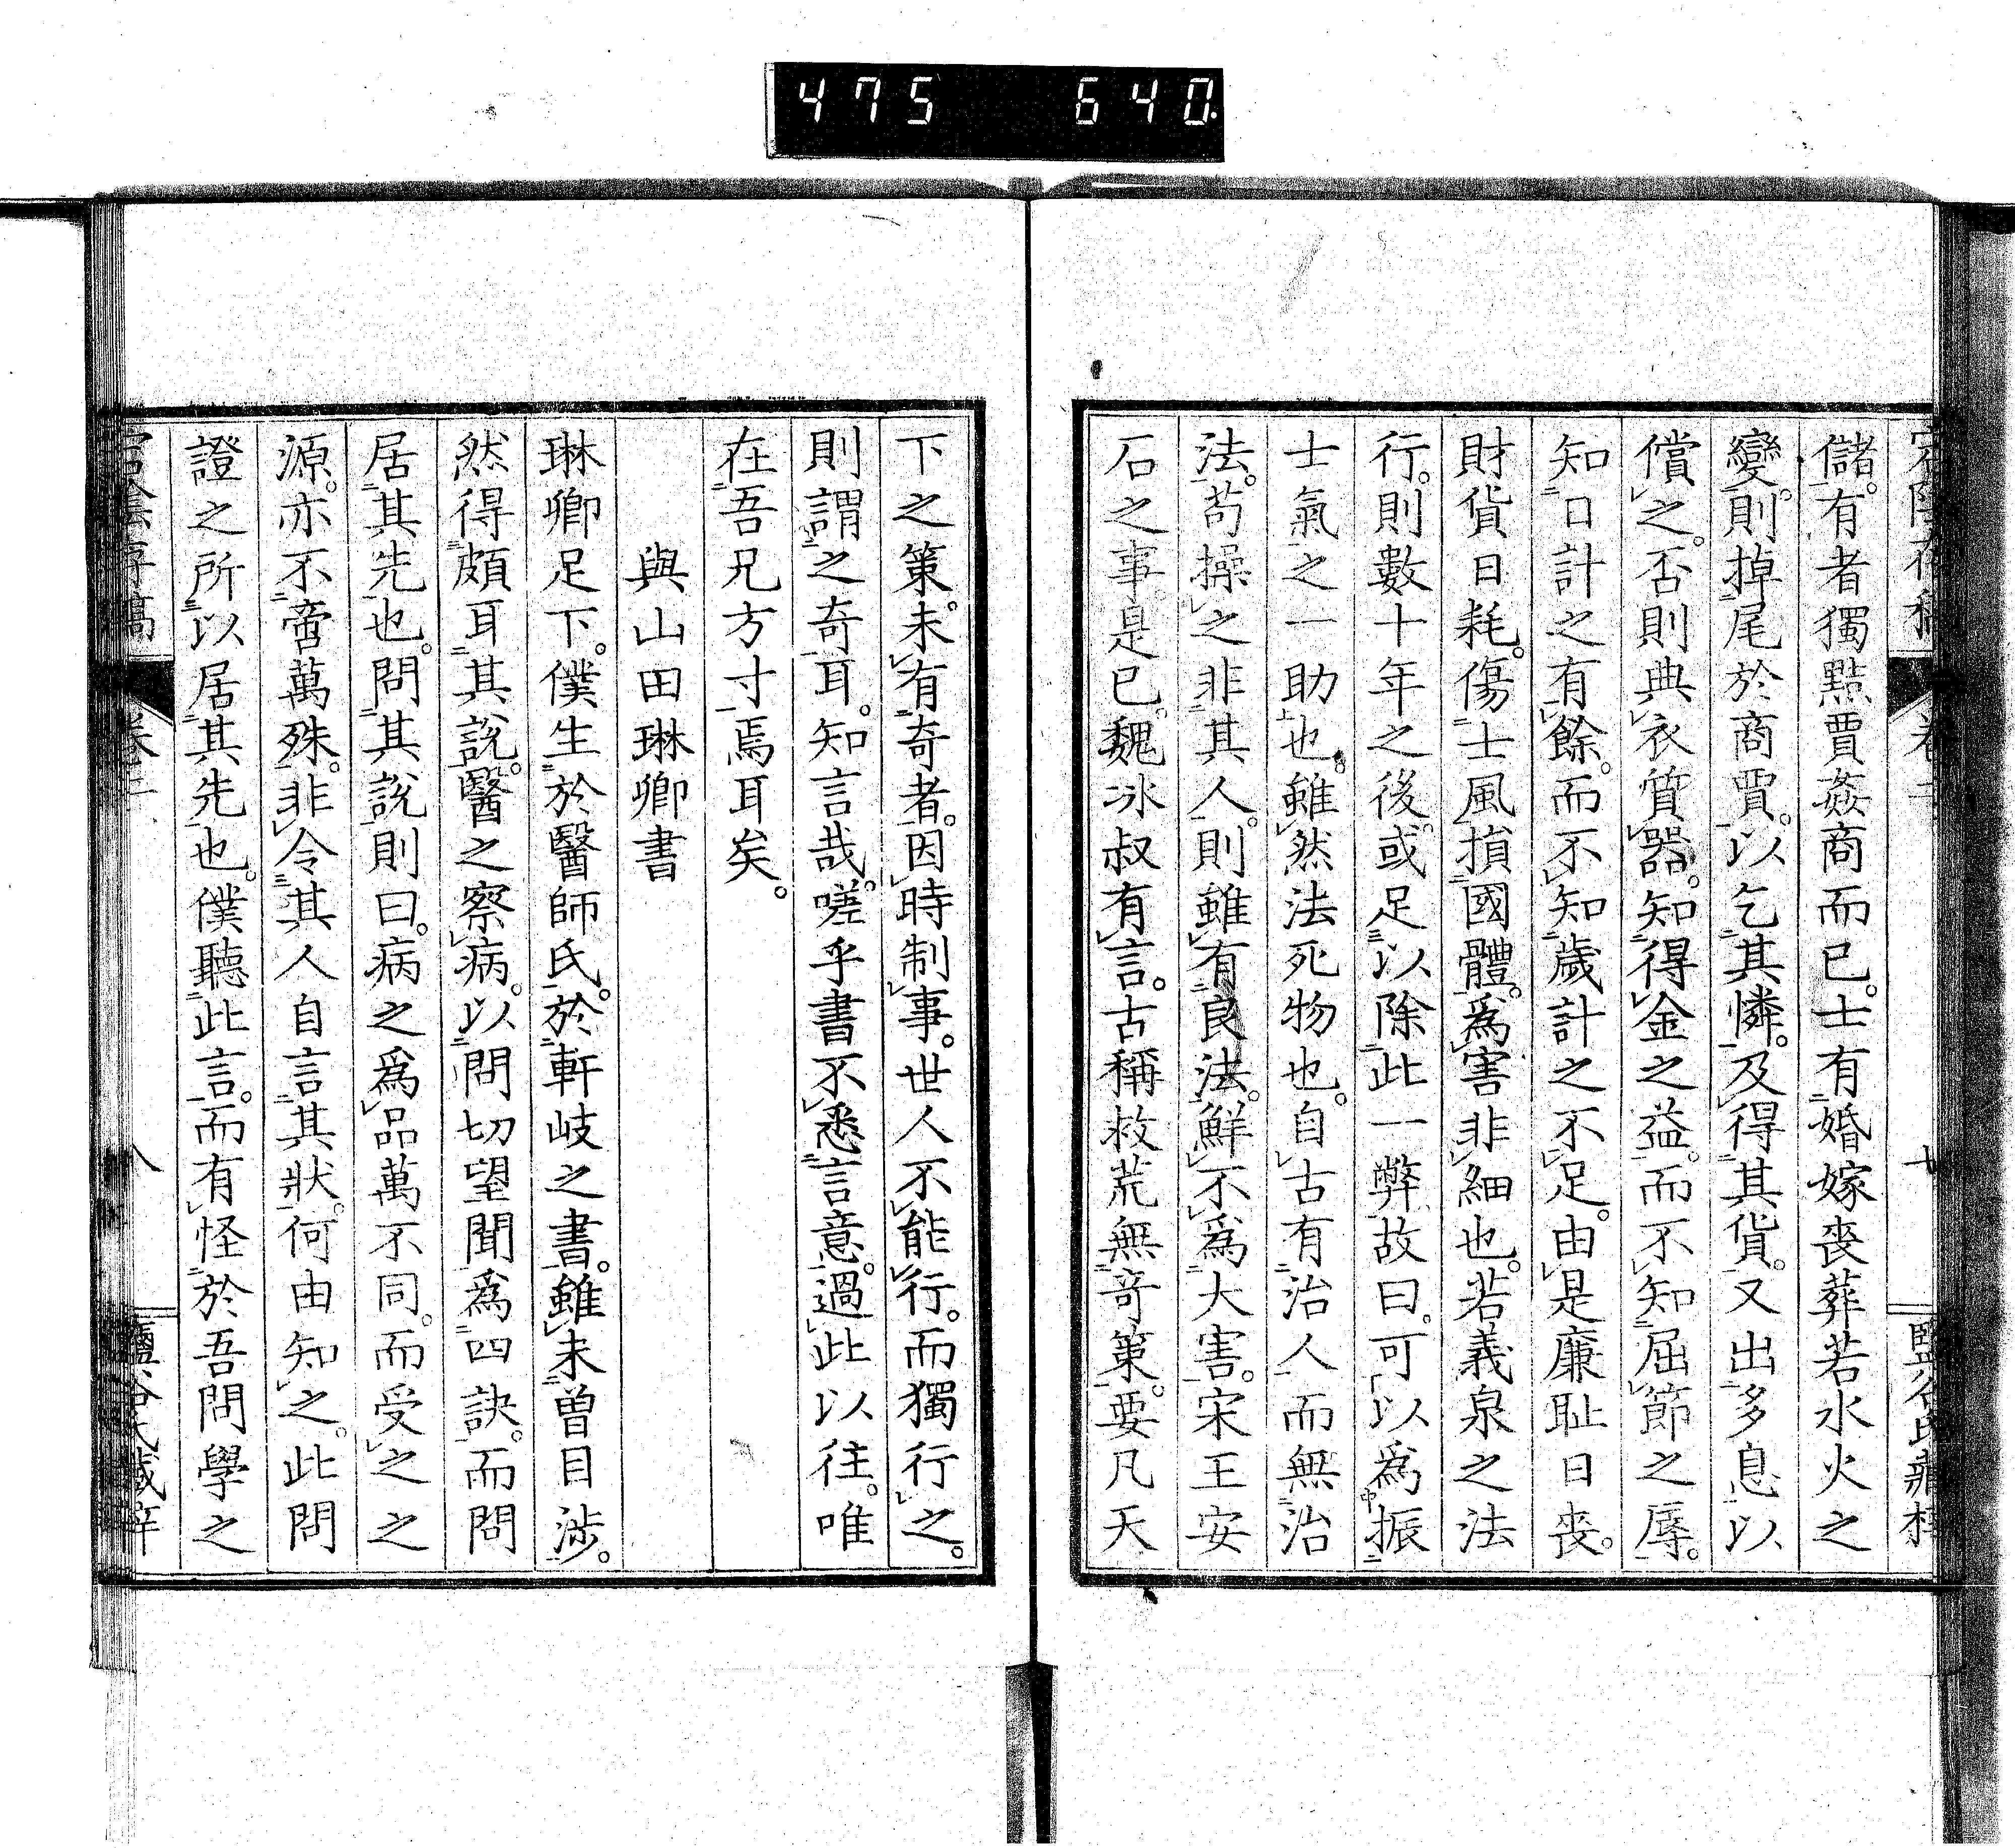 475 640
儲。有者獨黠賈姦商而已。士有婚嫁喪葬若水火之
變。則掉尾於商賈。以乞其憐。及得其貨。又出多息以
償之。否則典衣質器。知得金之益。而不知屈節之辱。
知口計之有餘。而不知歲計之不足。由是廉耻日喪。
財貨日耗。傷士風損國體。爲害非細也。若義泉之法
行。則數十年之後。或足以除此一弊。故曰。可以爲振
士氣之一助也。雖然法死物也。自古有治人而無治
法。苟操之非其人。則雖有良法。鮮不爲大害。宋王安
石之事。是已。魏冰叔有言。古稱救荒無奇策。要凡天
下之策。未有奇者。因時制事。世人不能行。而獨行之。
則謂之奇耳。知言哉。嗟乎書不悉言意。過此以往。唯
在吾兄方寸焉耳矣。
與山田琳卿書
琳卿足下。僕生於醫師氏。於軒岐之書。雖未曽目涉。
然得頗耳其說。醫之察病。以問切望聞爲四訣。而問
居其先也。問其說則曰。病之爲品萬不同。而受之之
源。亦不啻萬殊。非令其人自言其狀。何由知之。此問
證之所以居其先也。僕聽此言。而有怪於吾問學之